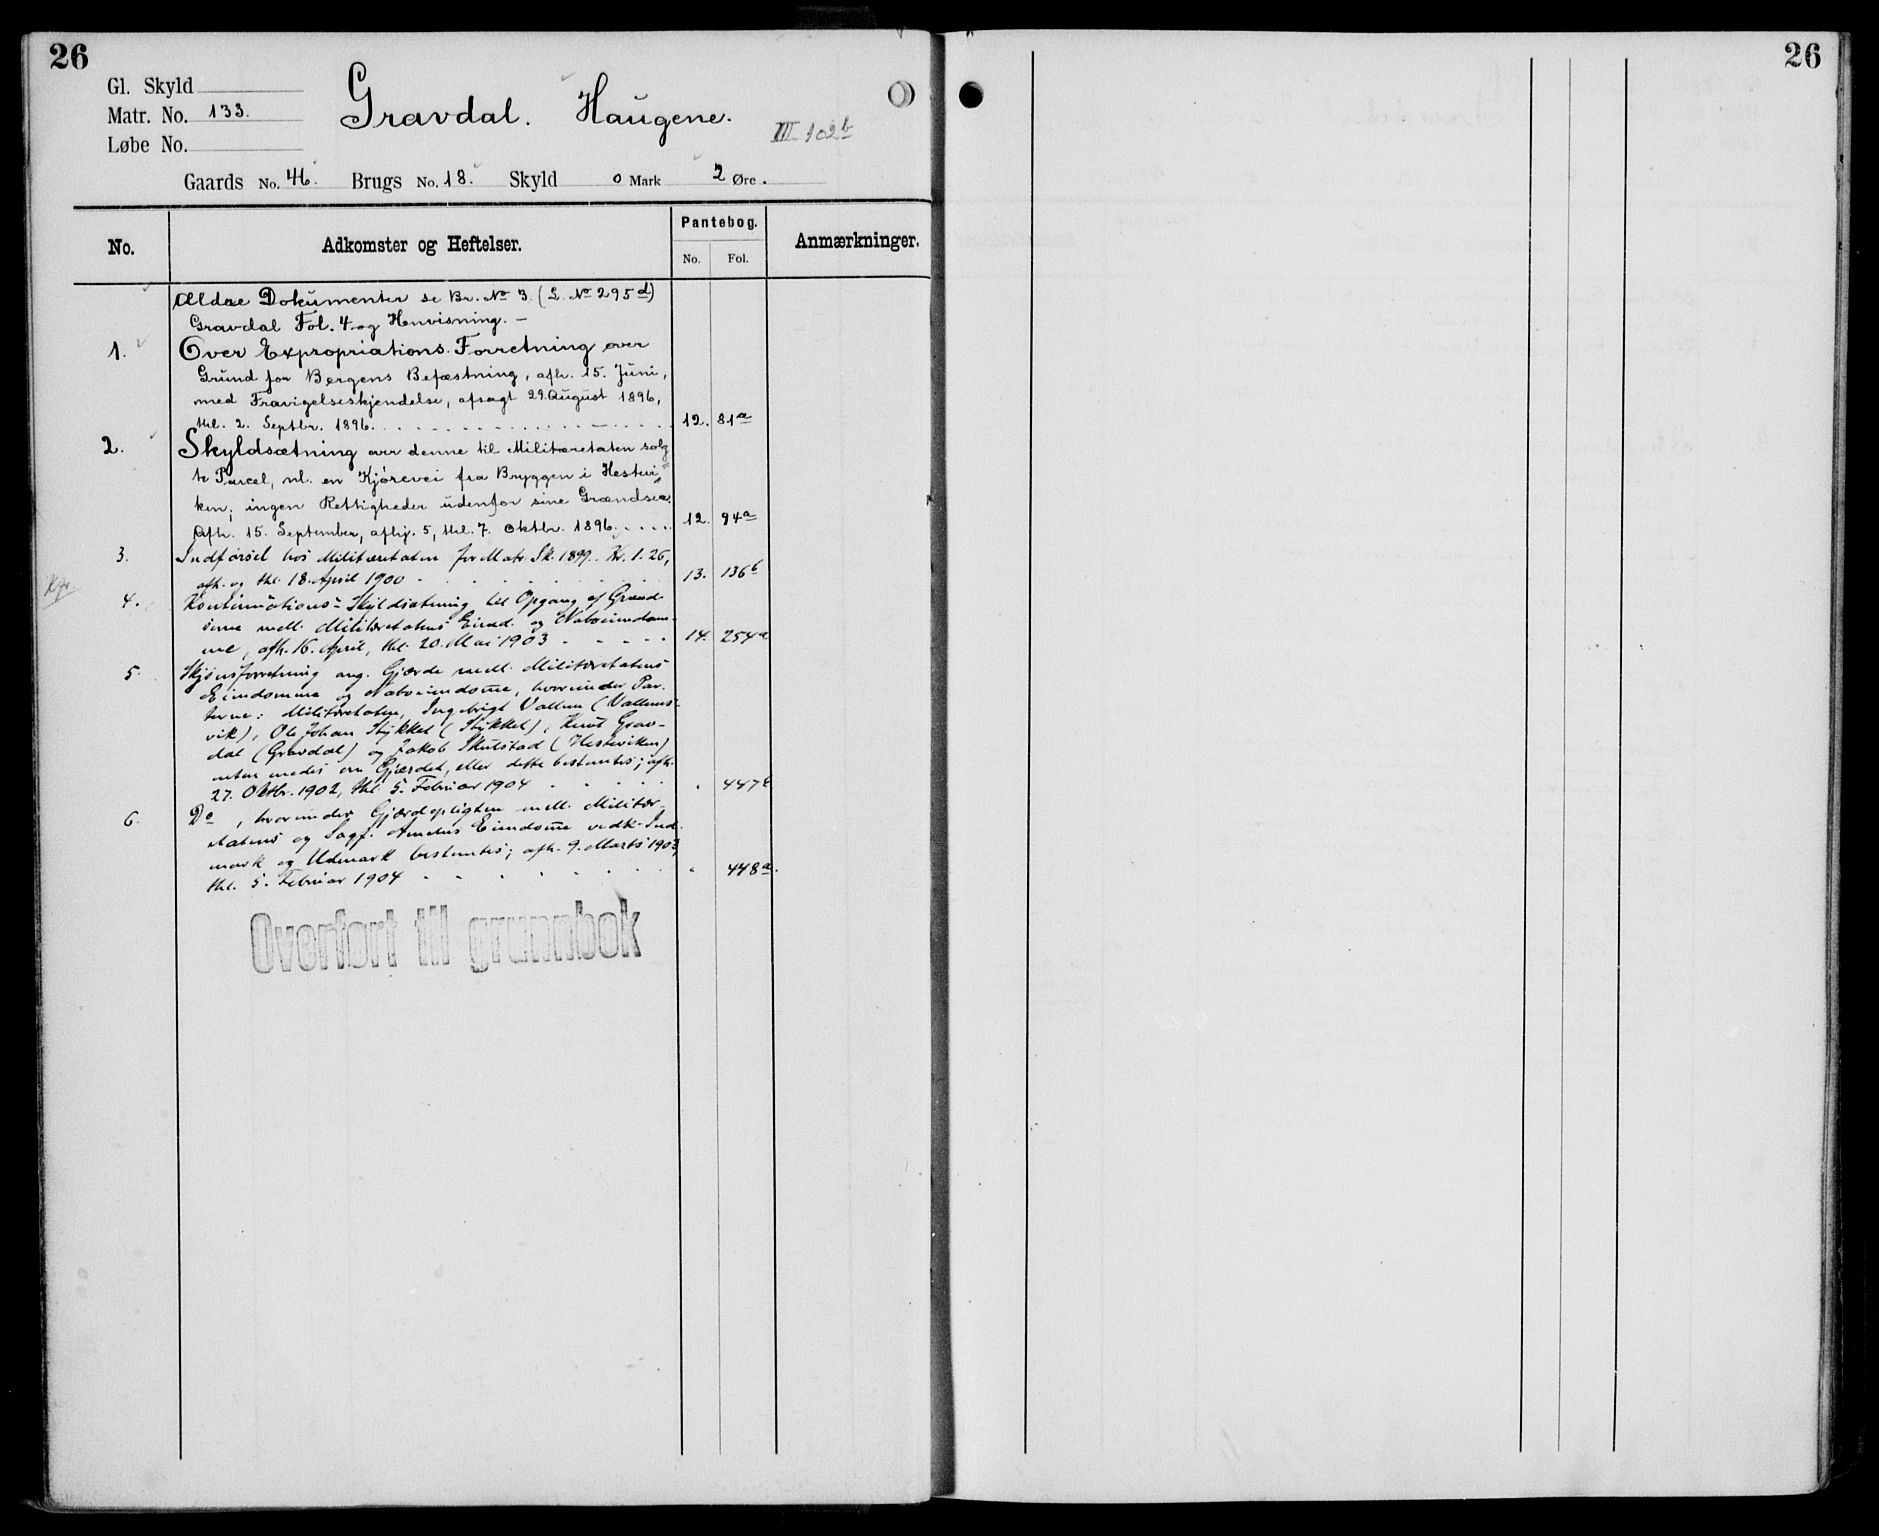 26
Gl. Skyld
Matr. No. 133.
Løbe No.
Gravdal. Haugene.
III 102b
Gaards No. 46. Brugs No. 18. Skyld 0 Mark 2 Øre.
No. Adkomster og Heftelser. Pantebog. No. Fol. Anmærkninger.
Ældre Dokumenter se Br. No 3. (L. No 295d)
Gravdal Fol. 4 og Henvisning. –
1. Over Expropriations-Forretning over
Grund for Bergens Befæstning, afh. 15. Juni,
med Fravigelseskjendelse, afsagt 29. August 1896,
thl. 2. Septbr. 1896. 12. 81a
2. Skyldsætning over denne til Militæretaten solg
te Parcel, nl. en Kjørevei fra Bryggen i Hestvi"
ken; ingen Rettigheder udenfor sine Grændser.
Afh. 15. September, afhj. 5, thl. 7. Oktbr. 1896. 12. 94a
3. Indførsel hos Militæretaten for Matr. Sk. 1899. Kr. 1.26,
afh. og thl. 18. April 1900 13. 136b
4. Kontinuations-Skyldsætning til Opgang af Grænd
serne mell. Militæretatens Eiend. og Naboeiendom-
me, afh. 16. April, thl. 20. Mai 1903 14. 254a
5. Skjønsforretning ang. Gjærde mell. Militæretatens
Eiendomme og Naboeiendome, hvorunder Par.
terne: Militæretaten, Ingebrigt Vallem (Vallems-
vik), Ole Johan Stykket (Stykket), Knut Grav-
dal (Gravdal) og Jakob Skulstad (Hesteviken)
enten enedes om Gjærdet, eller dette bestemtes; afh.
27. Oktbr. 1902, thl. 5. Februar 1904 " 447b
6. Do, hvorunder Gjærdepligten mell. Militær-
etatens og Sagf. Eiendome vedk. Ind.
mark og Udmark bestemtes; afh. 9. Marts 1903,
thl. 5. Februar 1904 " 448a.
Overført til grunnbok
26